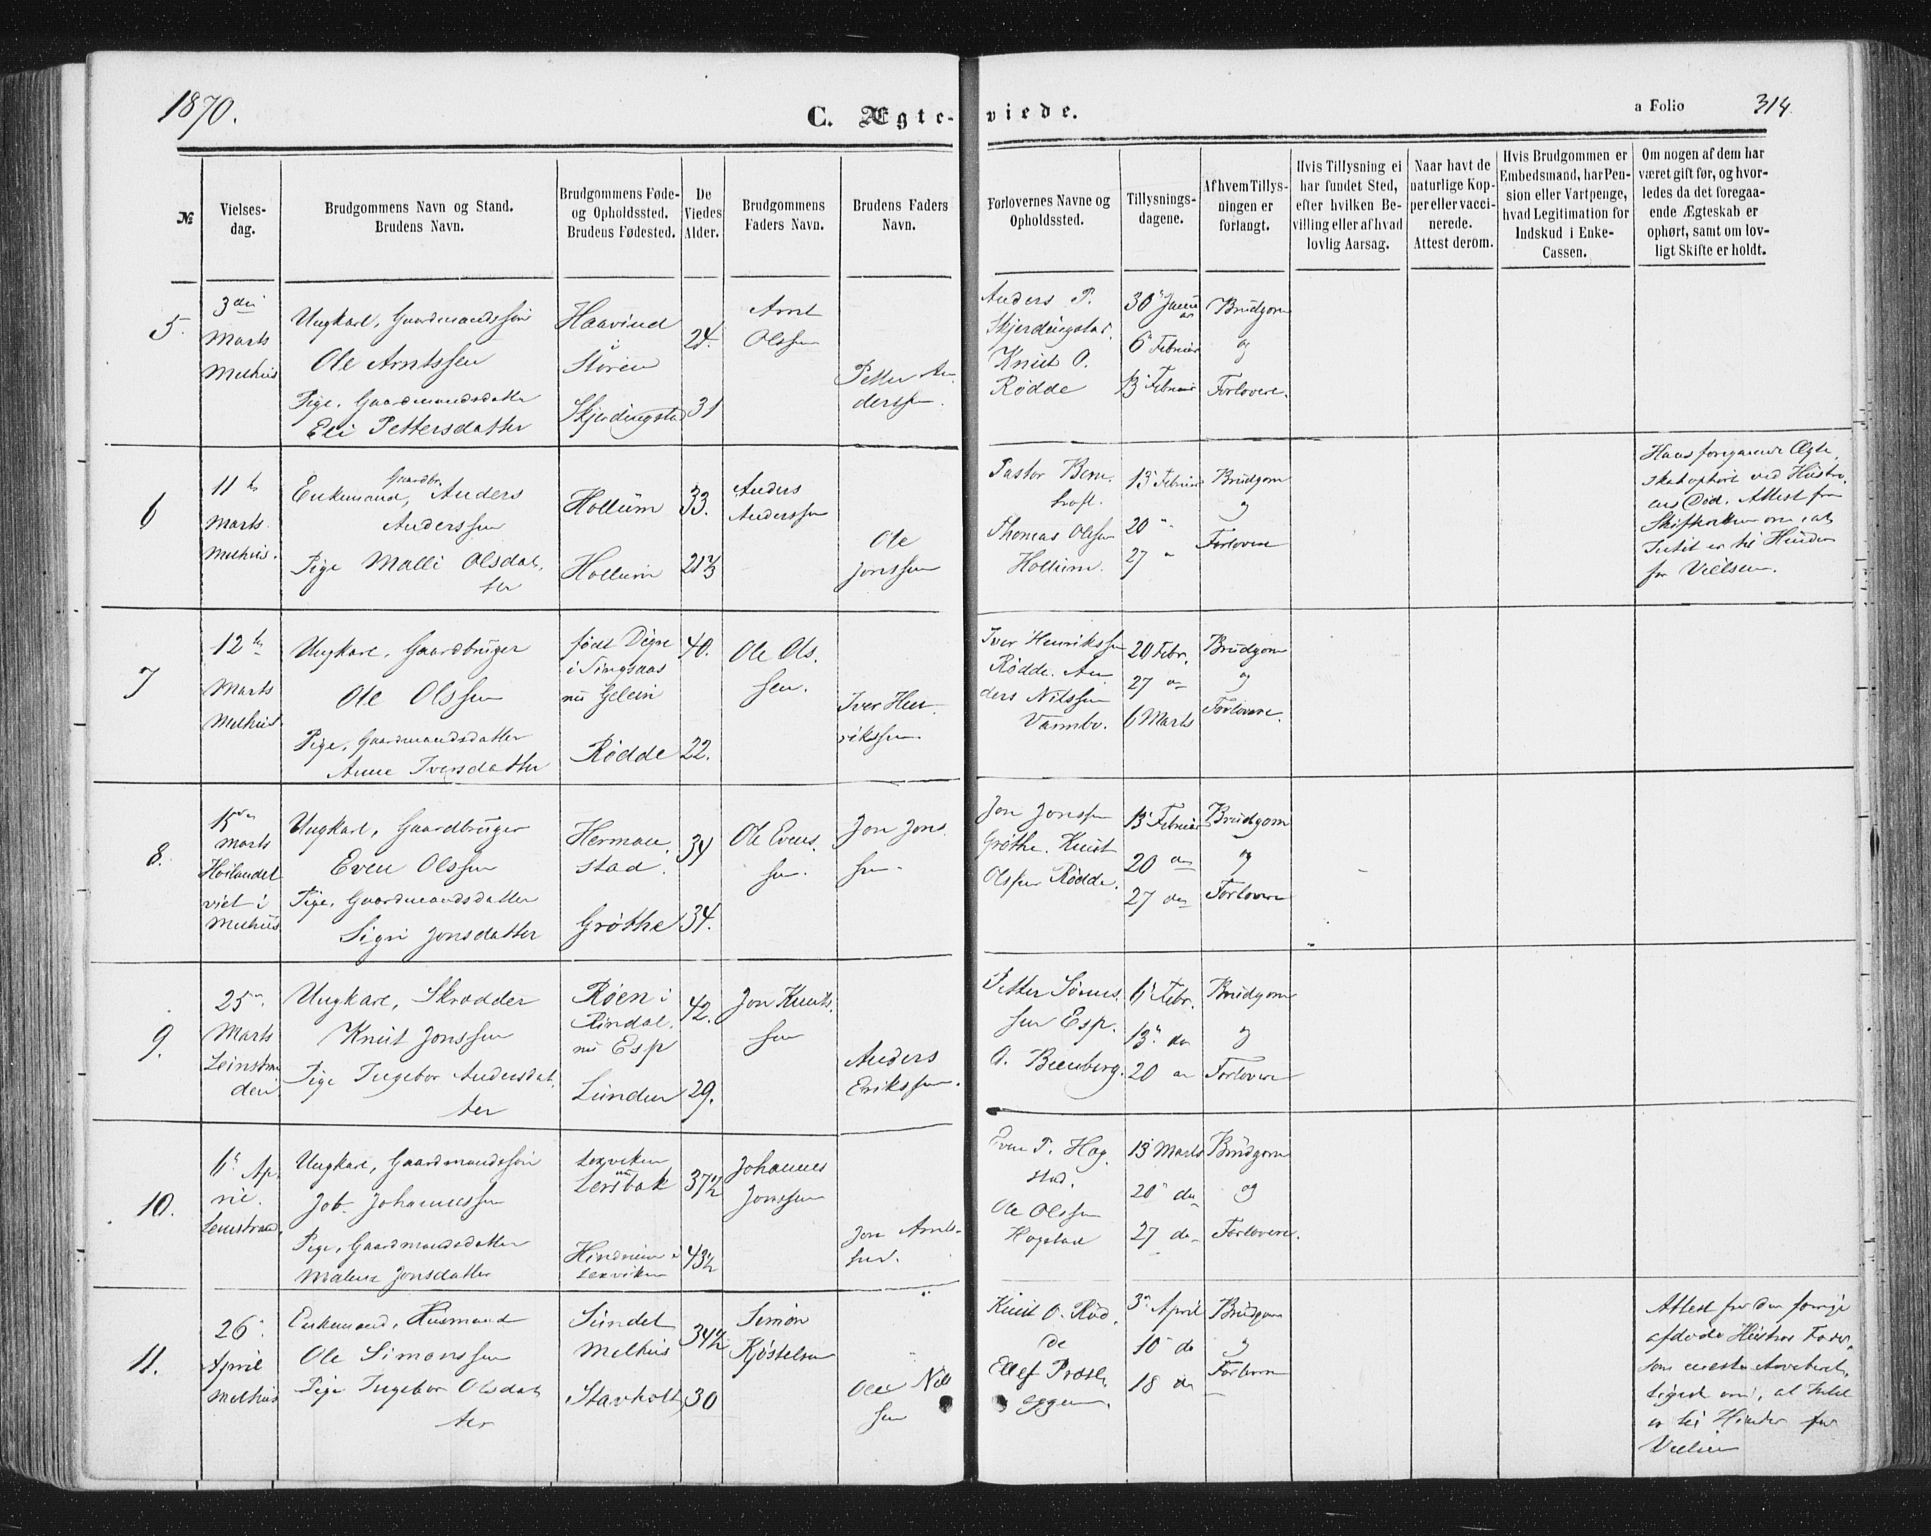 1870.
C. Ægte-viede.
a Folio 314
№
Vielses-
dag.
Brudgommens Navn og Stand.
Brudens Navn.
Brudgommens Føde-
og Opholdssted.
Brudens Fødested.
De
Viedes
Alder.
Brudgommens
Faders Navn.
Brudens Faders
Navn.
Forlovernes Navne og
Opholdssted.
Tillysnings-
dagene.
Af hvem Tillys-
ningen er
forlangt.
Hvis Tillysning ei
har fundet Sted,
efter hvilken Be-
villing eller af hvad
lovlig Aarsag.
Naar havt de
naturlige Kop-
per eller vacci-
nerede.
Attest derom.
Hvis Brudgommen er
Embedsmand, har Pen-
sion eller Vartpenge,
hvad Legitimation for
Indskud i Enke-
Cassen.
Om nogen af dem har
været gift før, og hvor-
ledes da det foregaa-
ende Ægteskab er
ophørt, samt om lov-
ligt Skifte er holdt.
5.
3die
Marts
Melhus
Ungkarl, Gaardmandssøn
Ole Arntssen
Pige, Gaardmandsdatter
Eli Pettersdatter
Haavind
i
Støren
Skjerdingstad
24.
31
Arnt
Olssen
Petter An-
derssen.
Anders P.
Skjerdingstad.
Knut O.
Rødde
30 Januar
6 Februar
13 Februar
Brudgom
og
Forlovere.
6
11te
Marts
Melhus.
Enkemand, Gaardbr. Anders
Anderssen
Pige Malli Olsdat-
ter
Hollum
Hollum
33.
21⅔
Anders
Anderssen
Ole
Jonssen
Pastor Bern-
hoft.
Thomas Olssen
Hollum.
13 Februar
20 "
27 "
Brudgom
og
Forlovere
Hans foregaaende Ægte-
skab ophørt ved Hustru-
ens Død. Attest fra
Skifteretten om, at
Intet er til Hinder
for Vielsen.
7
12te
Marts
Melhus
Ungkarl, Gaardbruger
Ole Olssen
Pige, Gaardmandsdatter
Anne Iversdatter
født Digre
i Singsaas
nu Gelein
Rødde
40.
22.
Ole Ols-
sen.
Iver Hen-
rikssen.
Iver Henrikssen
Rødde. An-
ders Nilssen
Vambo.
20 Febr.
27 "
6 Marts
Brudgom
og
Forlovere.
8.
15de
Marts
Høilandet
viet i
Melhus
Ungkarl, Gaardbruger
Even Olssen
Pige, Gaardmandsdatter
Sigri Jonsdatter
Herman-
stad.
Grøthe
34
34.
Ole Evens-
sen.
Jon Jons-
sen
Jon Jonssen
Grøthe. Knut
Olssen Rødde.
13 Februar
20 do
27 do
Brudgom
og
Forlovere
9.
25de
Marts
Leinstran-
den
Ungkarl, Skrædder
Knut Jonssen
Pige Ingebor Andersdat-
ter
Røen i
Rindal.
nu Esp
Lunden
42.
29.
Jon Knuts-
sen
Anders
Erikssen.
Petter Siøns-
sen Esp.
O. Benberg.
6 Febr.
13 do
20 do
Brudgom
og
Forlovere
10.
6te Ap-
ril.
Leinstrand.
Ungkarl, Gaardmandssøn
Job Johannessen
Pige, Gaardmandsdatter
Malena Jonsdatter
Lexviken
nu Lersbak
Hindrum i
Lexviken
37½
43½
Johannes
Jonssen
Jon Arnts-
sen.
Even P. Hag-
stad.
Ole Olssen
Hagstad
13 Marts
20 do
27 do
Brudgom
og
Forlovere.
11.
26
April
Melhus
Enkemand, Husmand
Ole Simonssen
Pige Ingebor Olsdat-
ter
Sundet
Melhus
Stavholt
34½
30
Simon
Kjøstelsen
Ole Nils-
sen
Knut O. Rød-
de
Ellef Presth-
eggen.
3 April
10 do
18 do
Brudgom
og
Forlovere
Attest fra den forrige
afdøde Hustrus Fader,
som eneste Arveberet-
tiget om, at Intet
er til Hinder for
Vielsen